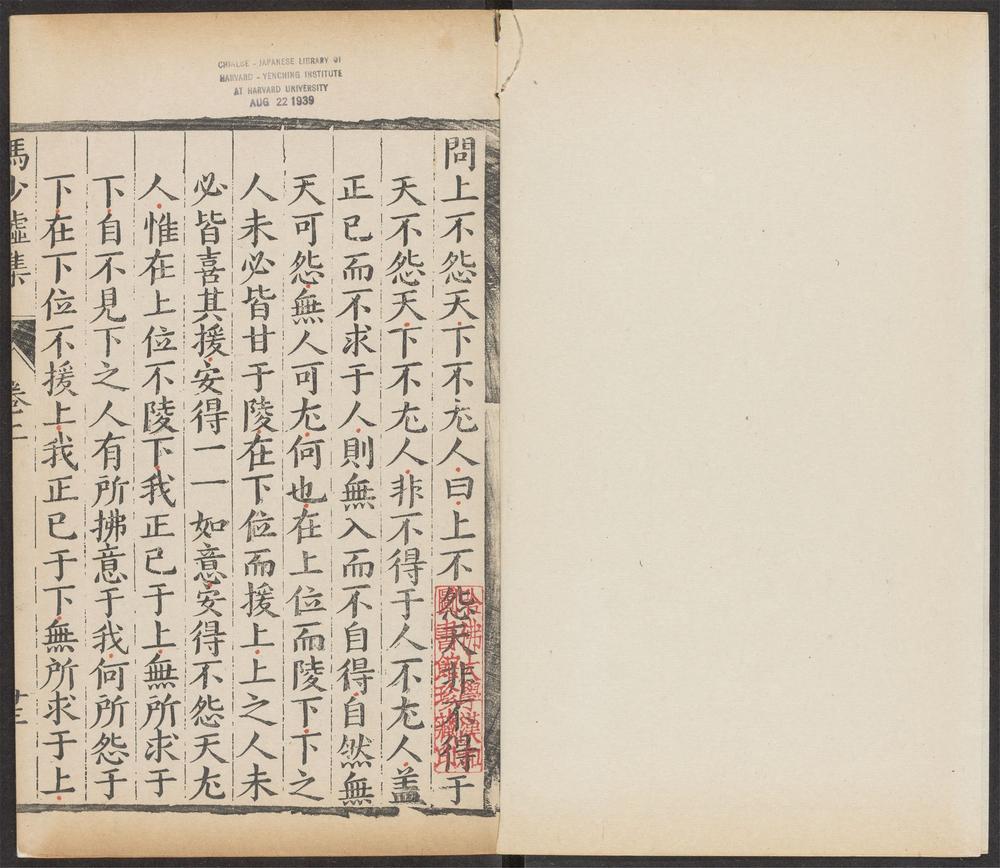 CHINESE - JAPANESE LIBRARY OF
HARVARD - YENCHING INSTITUTE
AT HARVARD UNIVERSITY
AUG 22 1939
問上不怨天下不尤人曰上不怨天非不得于
天不怨天下不尤人非不得于人不尤人葢
正己而不求于人則無入而不自得自然無
天可怨無人可尤何也在上位而陵下下之
人未必皆甘于陵在下位而援上上之人未
必皆喜其援安得一一如意安得不怨天尤
人惟在上位不陵下我正己于上無所求于
下自不見下之人有所拂意于我何所怨于
下在下位不援上我正己于下無所求于上
馮少墟集
卷二
廿三
哈佛大學漢和
圖書館珍藏印